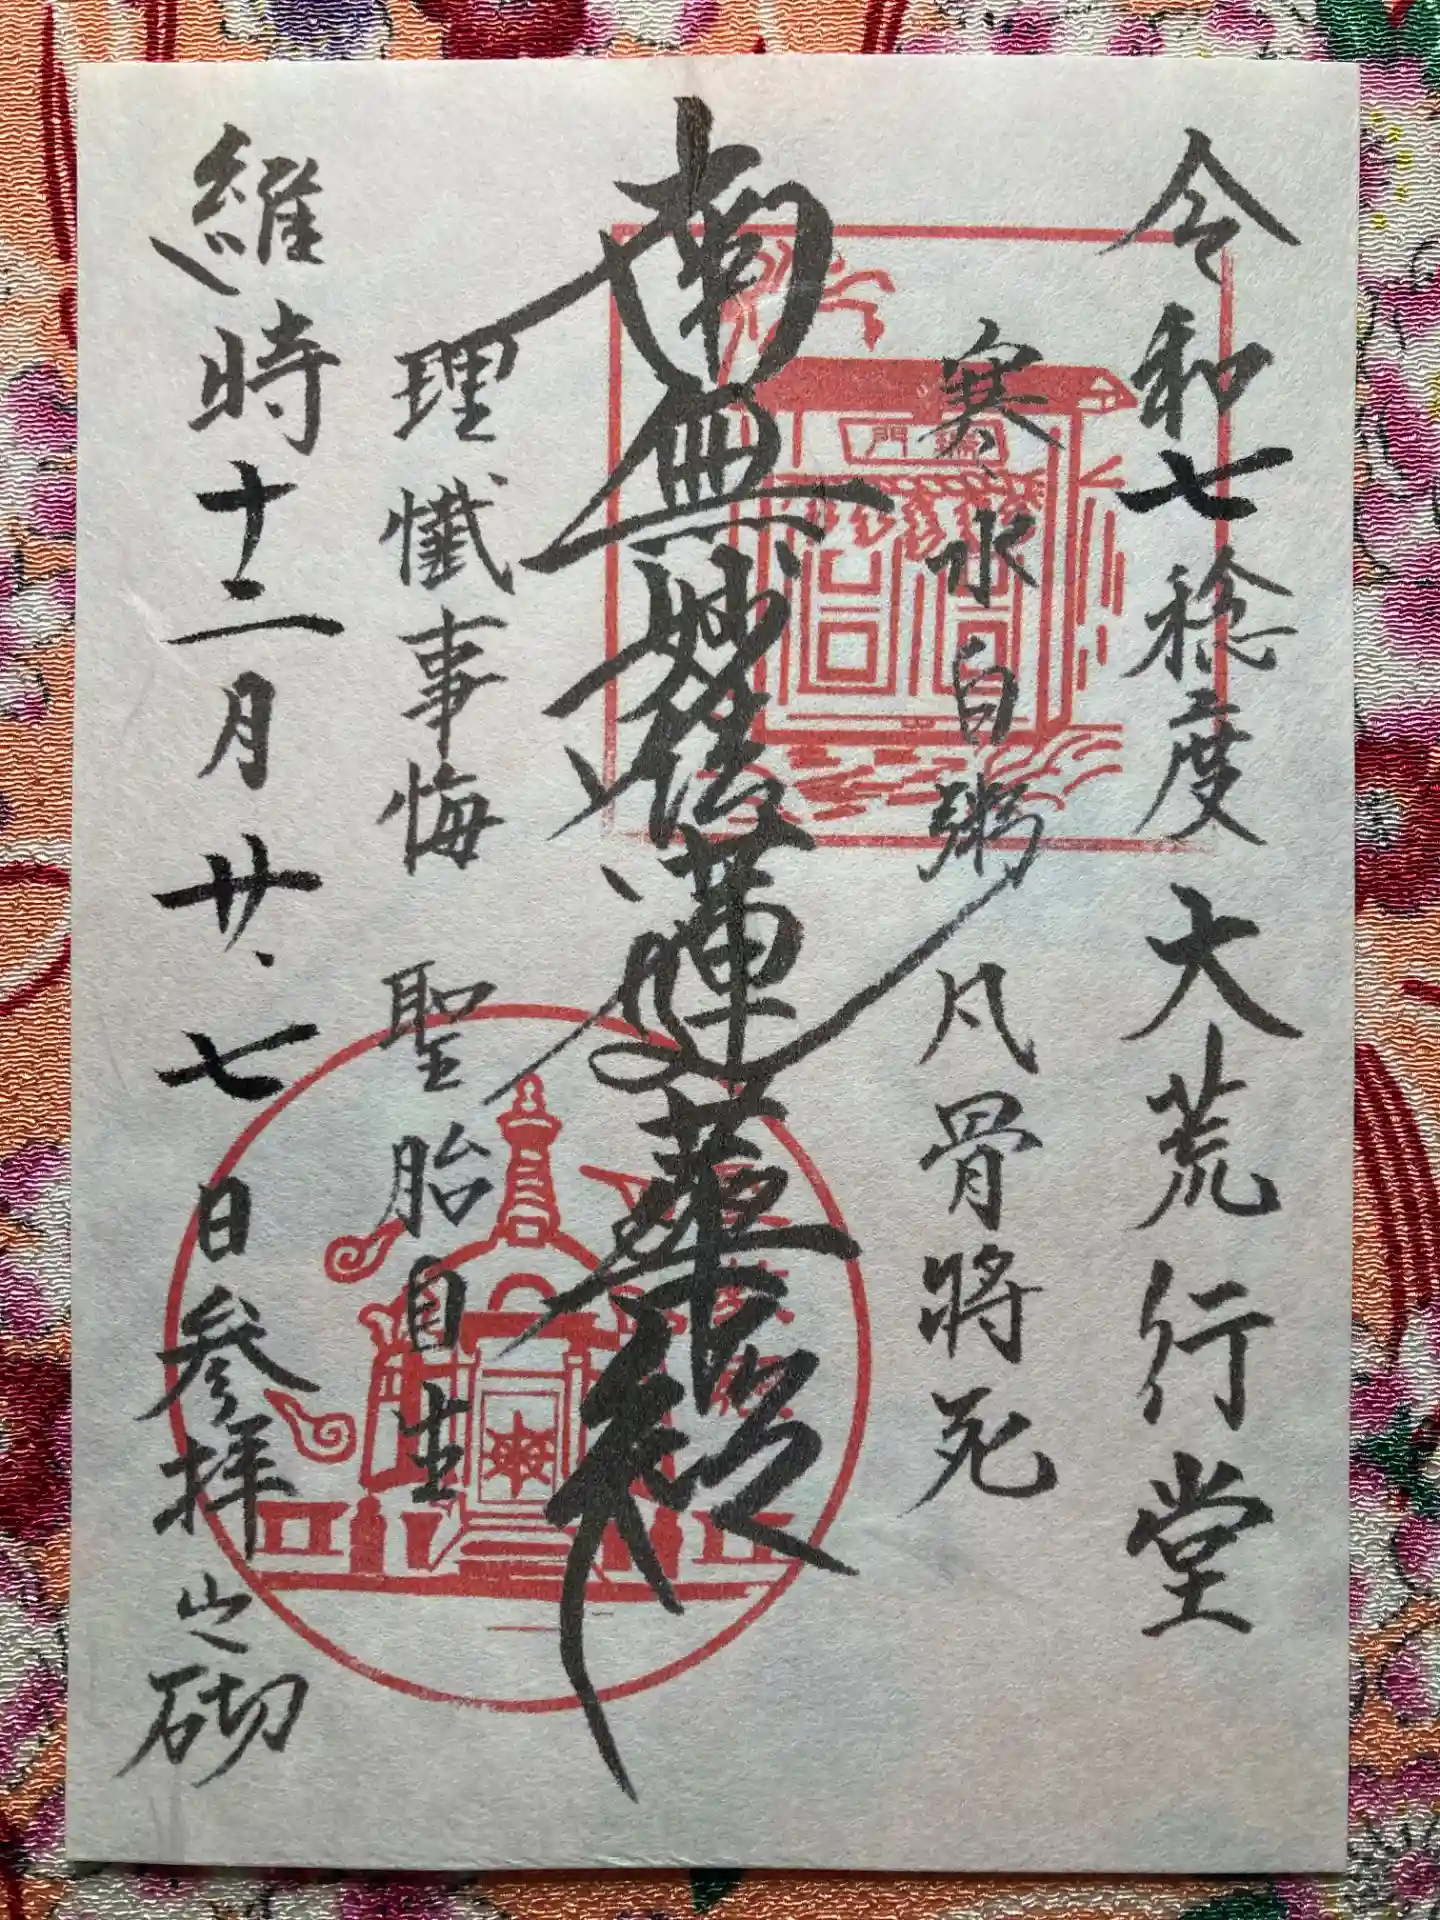 令和七稔度 大荒行堂
寒水白粥 凡骨将死
南無妙法蓮華経
理懺事悔 聖胎自生
維時十二月廿七日参拝之砌
門